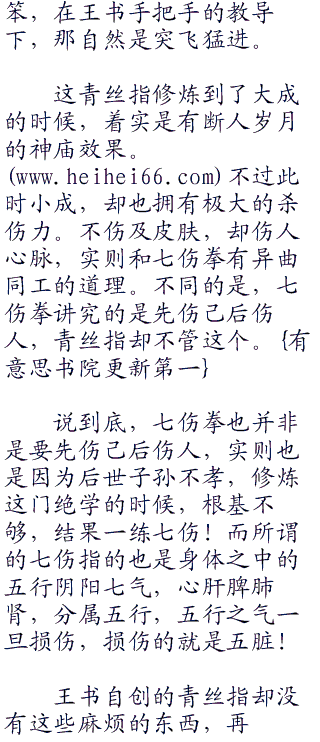 笨，在王书手把手的教导
下，那自然是突飞猛进。
这青丝指修炼到了大成
的时候，着实是有断人岁月
的神庙效果。
(www.heihei66.com)不过此
时小成，却也拥有极大的杀
伤力。不伤及皮肤，却伤人
心脉，实则和七伤拳有异曲
同工的道理。不同的是，七
伤拳讲究的是先伤己后伤
人，青丝指却不管这个。{有
意思书院更新第一}
说到底，七伤拳也并非
是要先伤己后伤人，实则也
是因为后世子孙不孝，修炼
这门绝学的时候，根基不
够，结果一练七伤！而所谓
的七伤指的也是身体之中的
五行阴阳七气，心肝脾肺
肾，分属五行，五行之气一
旦损伤，损伤的就是五脏！
王书自创的青丝指却没
有这些麻烦的东西，再